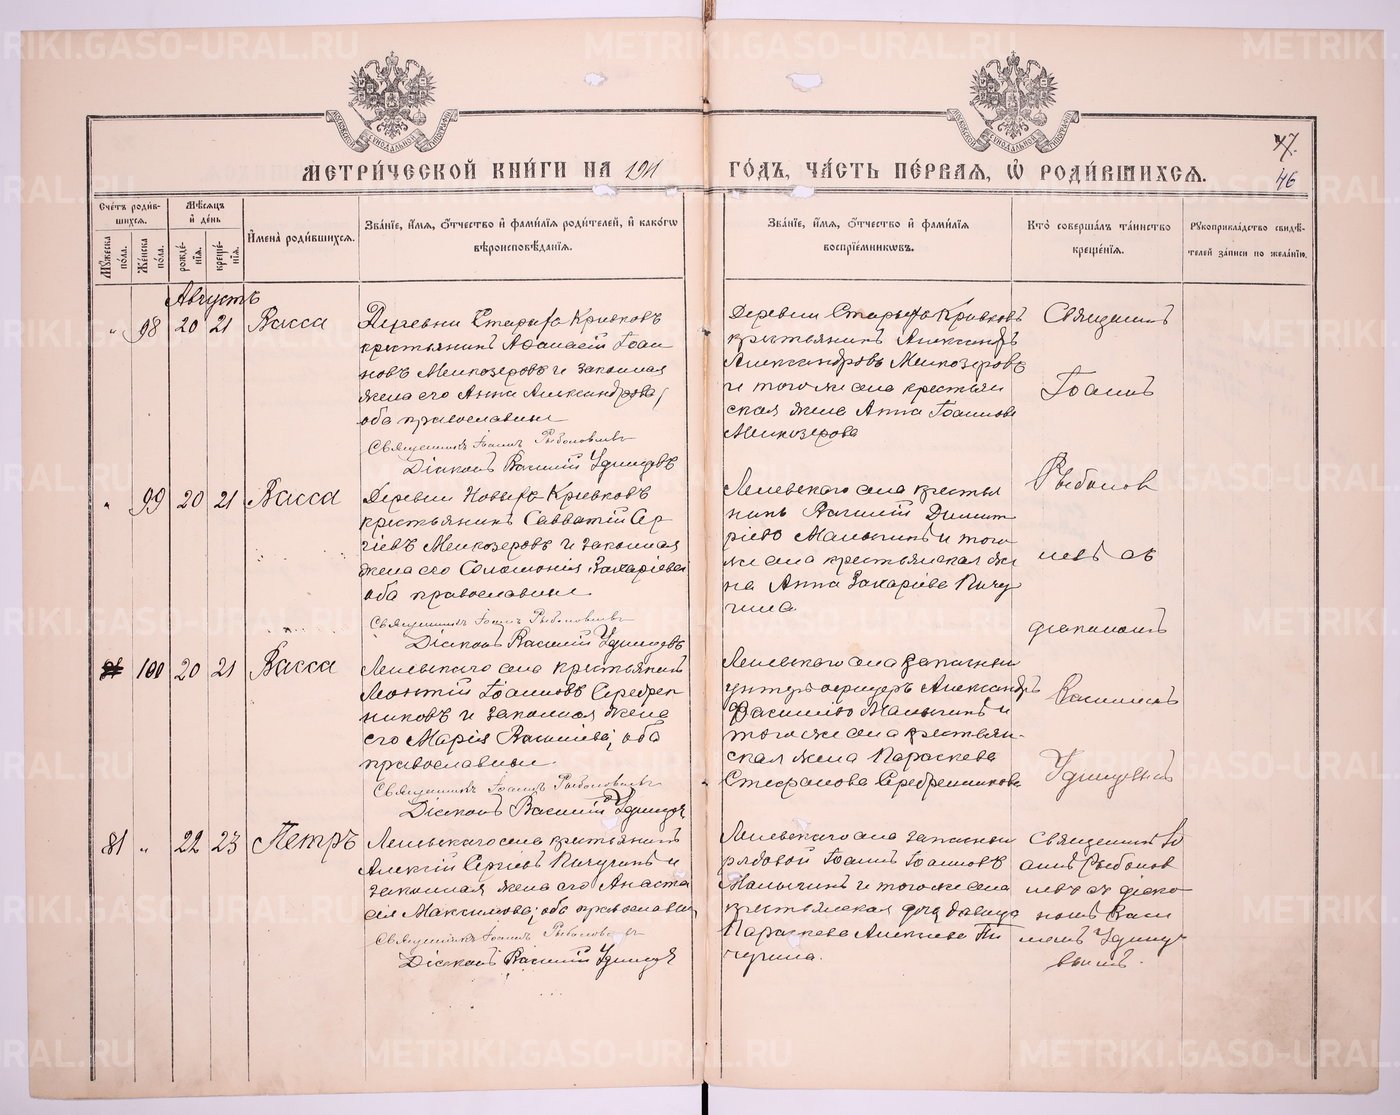 МЕТРИ́ЧЕСКОЙ КНИ́ГИ НА 1911
ГО́ДЪ, ЧА́СТЬ ПЕ́РВАЯ, Ѡ҆ РОДИ́ВШИХСЯ.
47.
46
Сче́тъ роди́вшихся.
Му́жеска по́ла.
Же́нска по́ла.
Мѣ́сяцъ и҆ де́нь
рожде́нїя.
креще́нїя.
И҆мена̀ роди́вшихся.
Зва́нїе, и҆́мя, ѻ҆́тчество и҆ фами́лїя роди́телей, и҆ како́гѡ
вѣроисповѣ́данїя.
Зва́нїе, и҆́мя, ѻ҆́тчество и҆ фами́лїя
воспрїе́мникѡвъ.
Кто̀ соверша́лъ та́инство
креще́нїя.
Рукоприкла́дство свидѣ́-
телей за́писи по жела́нїю.
Августъ
" 98 20 21 Васса
Деревни Старыхъ Кривковъ
крестьянинъ Афанасій Іоан
новъ Мелкозеровъ и законная
жена его Анна Александрова,
оба православные
Священникъ Іоаннъ Рыболовлевъ
Діаконъ Василій Удинцевъ
Деревни Старыхъ Кривковъ
крестьянинъ Александръ
Александровъ Мелкозеровъ
и того же села крестьян
ская жена Анна Іоаннова
Мелкозерова
Священникъ
Іоаннъ
Рыболов
левъ съ
діакономъ
Василіемъ
Удинцевымъ
" 99 20 21 Васса
Деревни Новыхъ Кривковъ
крестьянинъ Савватій Сер
гіевъ Мелкозеровъ и законная
жена его Соломонія Захаріева
оба православные
Священникъ Іоаннъ Рыболовлевъ
Діаконъ Василій Удинцевъ
села крестья
нинъ Василій Димит
ріевъ Мальгинъ и того
же села крестьянская же
на Анна Захаріева Пичу
гина
100 20 21 Васса
села крестьянинъ
Леонтій Іоанновъ Серебрен
никовъ и законная жена
его Марія Васильева, оба
православные
Священникъ Іоаннъ Рыболовлевъ
Діаконъ Василій Удинцевъ
села запасный
унтеръ офицеръ Александръ
Васильевъ Мальгинъ и
того же села крестьян-
ская жена Параскева
Стефанова Серебренникова
81 " 22 23 Петръ
села крестьянинъ
Алексій Сергіевъ Пичугинъ и
законная жена его Анаста
сія Максимова, оба православны
Священникъ Іоаннъ Рыболовлевъ
Діаконъ Василій Удинцевъ
села запасный
рядовой Іоаннъ Іоанновъ
Мальгинъ и того же села
крестьянская дочь девица
Параскева Алексіева Пи
чугина.
Священникъ Іо
аннъ Рыболов
левъ съ діако
номъ Васи
ліемъ Удинце
вымъ.
METRIKI.GASO-URAL.RU